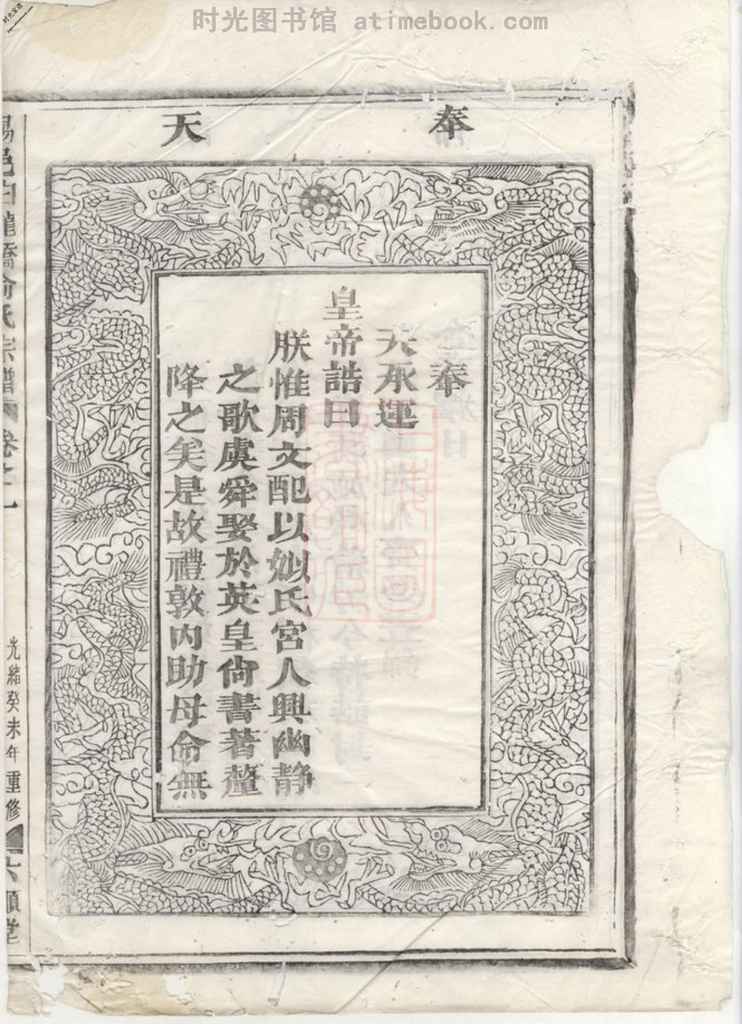 时光图书馆 atimebook.com
奉天
奉
天承運
皇帝誥曰
朕惟周文配以姒氏宮人興幽静
之歌虞舜娶於英皇尙書著釐
降之矣是故禮敦内助母命無
邑白龍橋俞氏宗譜
卷之一
光緒癸未年重修